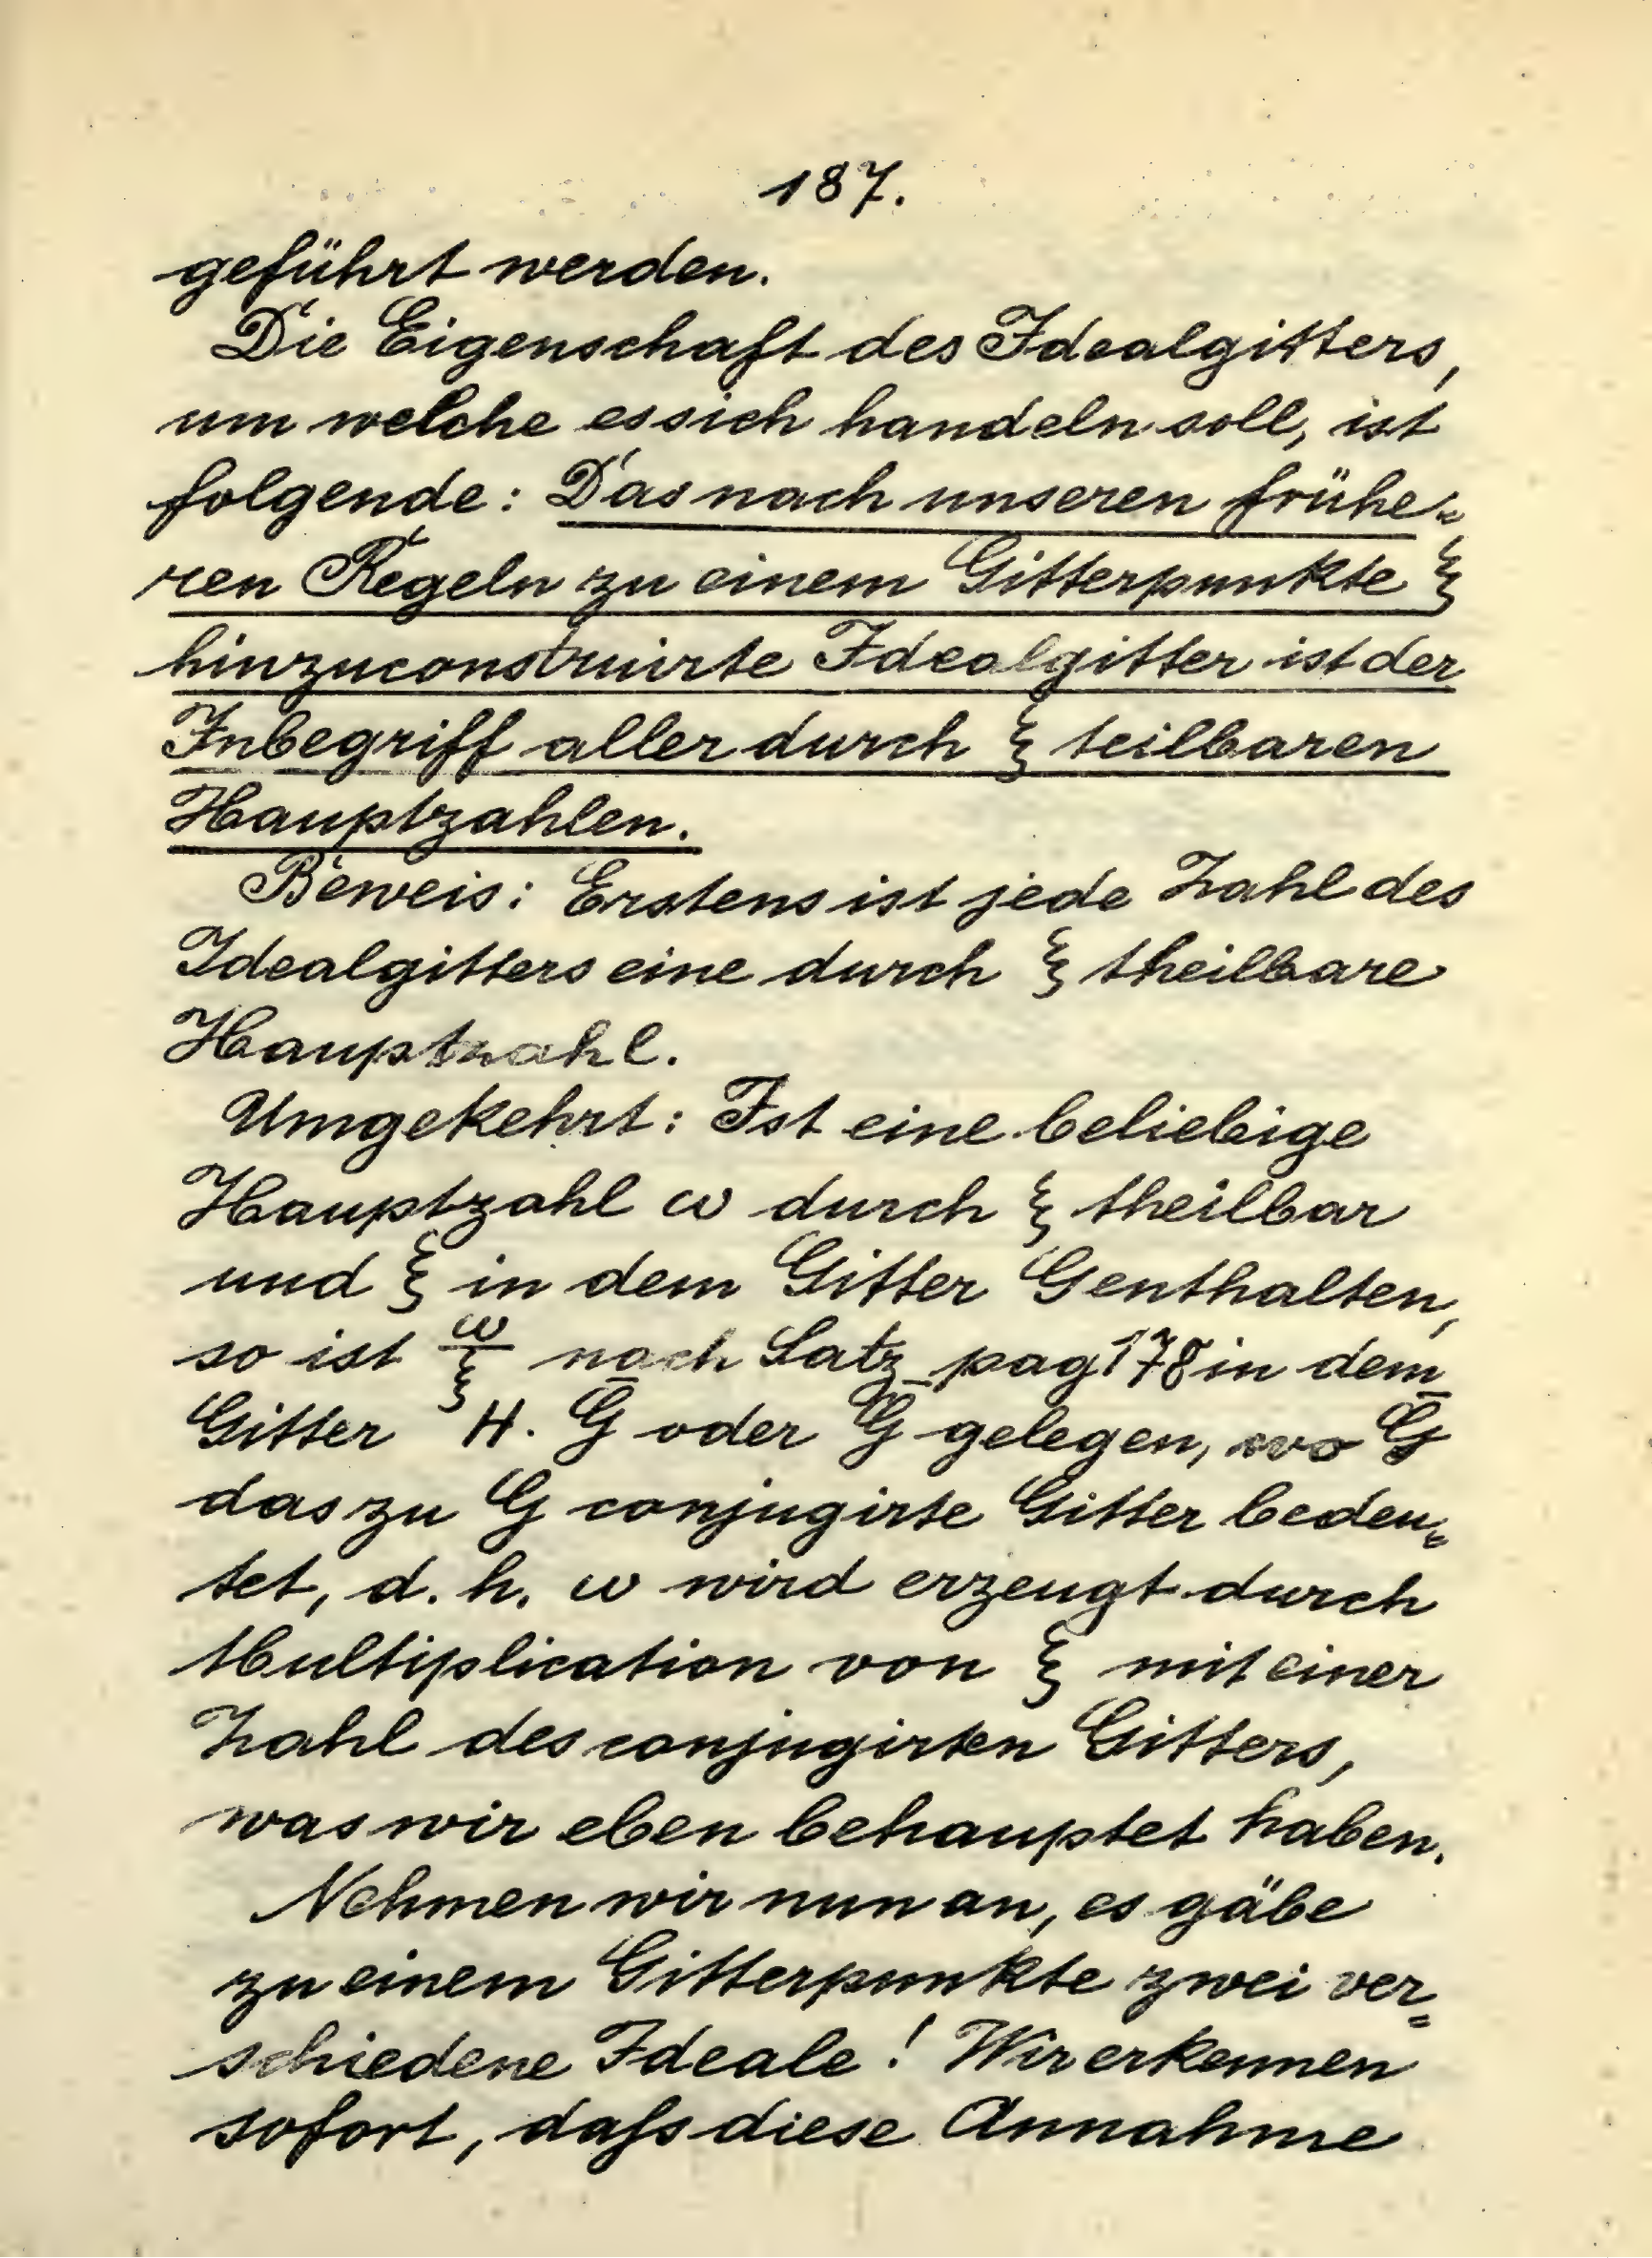 187.
geführt werden.
Die Eigenschaft des Idealgitters,
um welche es sich handeln soll, ist
folgende: Das nach unseren frühe=
ren Regeln zu einem Gitterpunkte ξ
hinzuconstruirte Idealgitter ist der
Inbegriff aller durch ξ teilbaren
Hauptzahlen.
Beweis: Erstens ist jede Zahl des
Idealgitters eine durch ξ theilbare
Hauptzahl.
Umgekehrt: Ist eine beliebige
Hauptzahl ω durch ξ theilbar
und ξ in dem Gitter G enthalten,
so ist ω/ξ nach Satz pag 178 in dem
Gitter H. G̅ oder G̅ gelegen, wo G̅
das zu G conjugirte Gitter bedeu=
tet, d. h. ω wird erzeugt durch
Multiplication von ξ mit einer
Zahl des conjugirten Gitters,
was wir eben behauptet haben.
Nehmen wir nun an, es gäbe
zu einem Gitterpunkte zwei ver=
schiedene Ideale! Wir erkennen
sofort, daſs diese Annahme